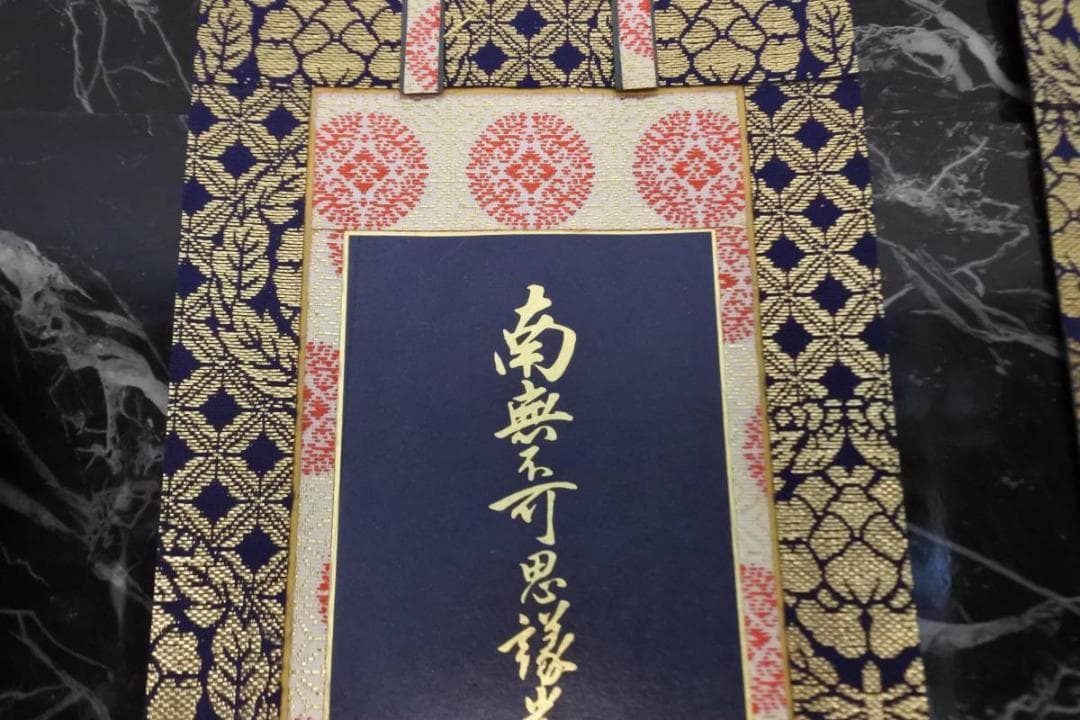 南無不可思議光